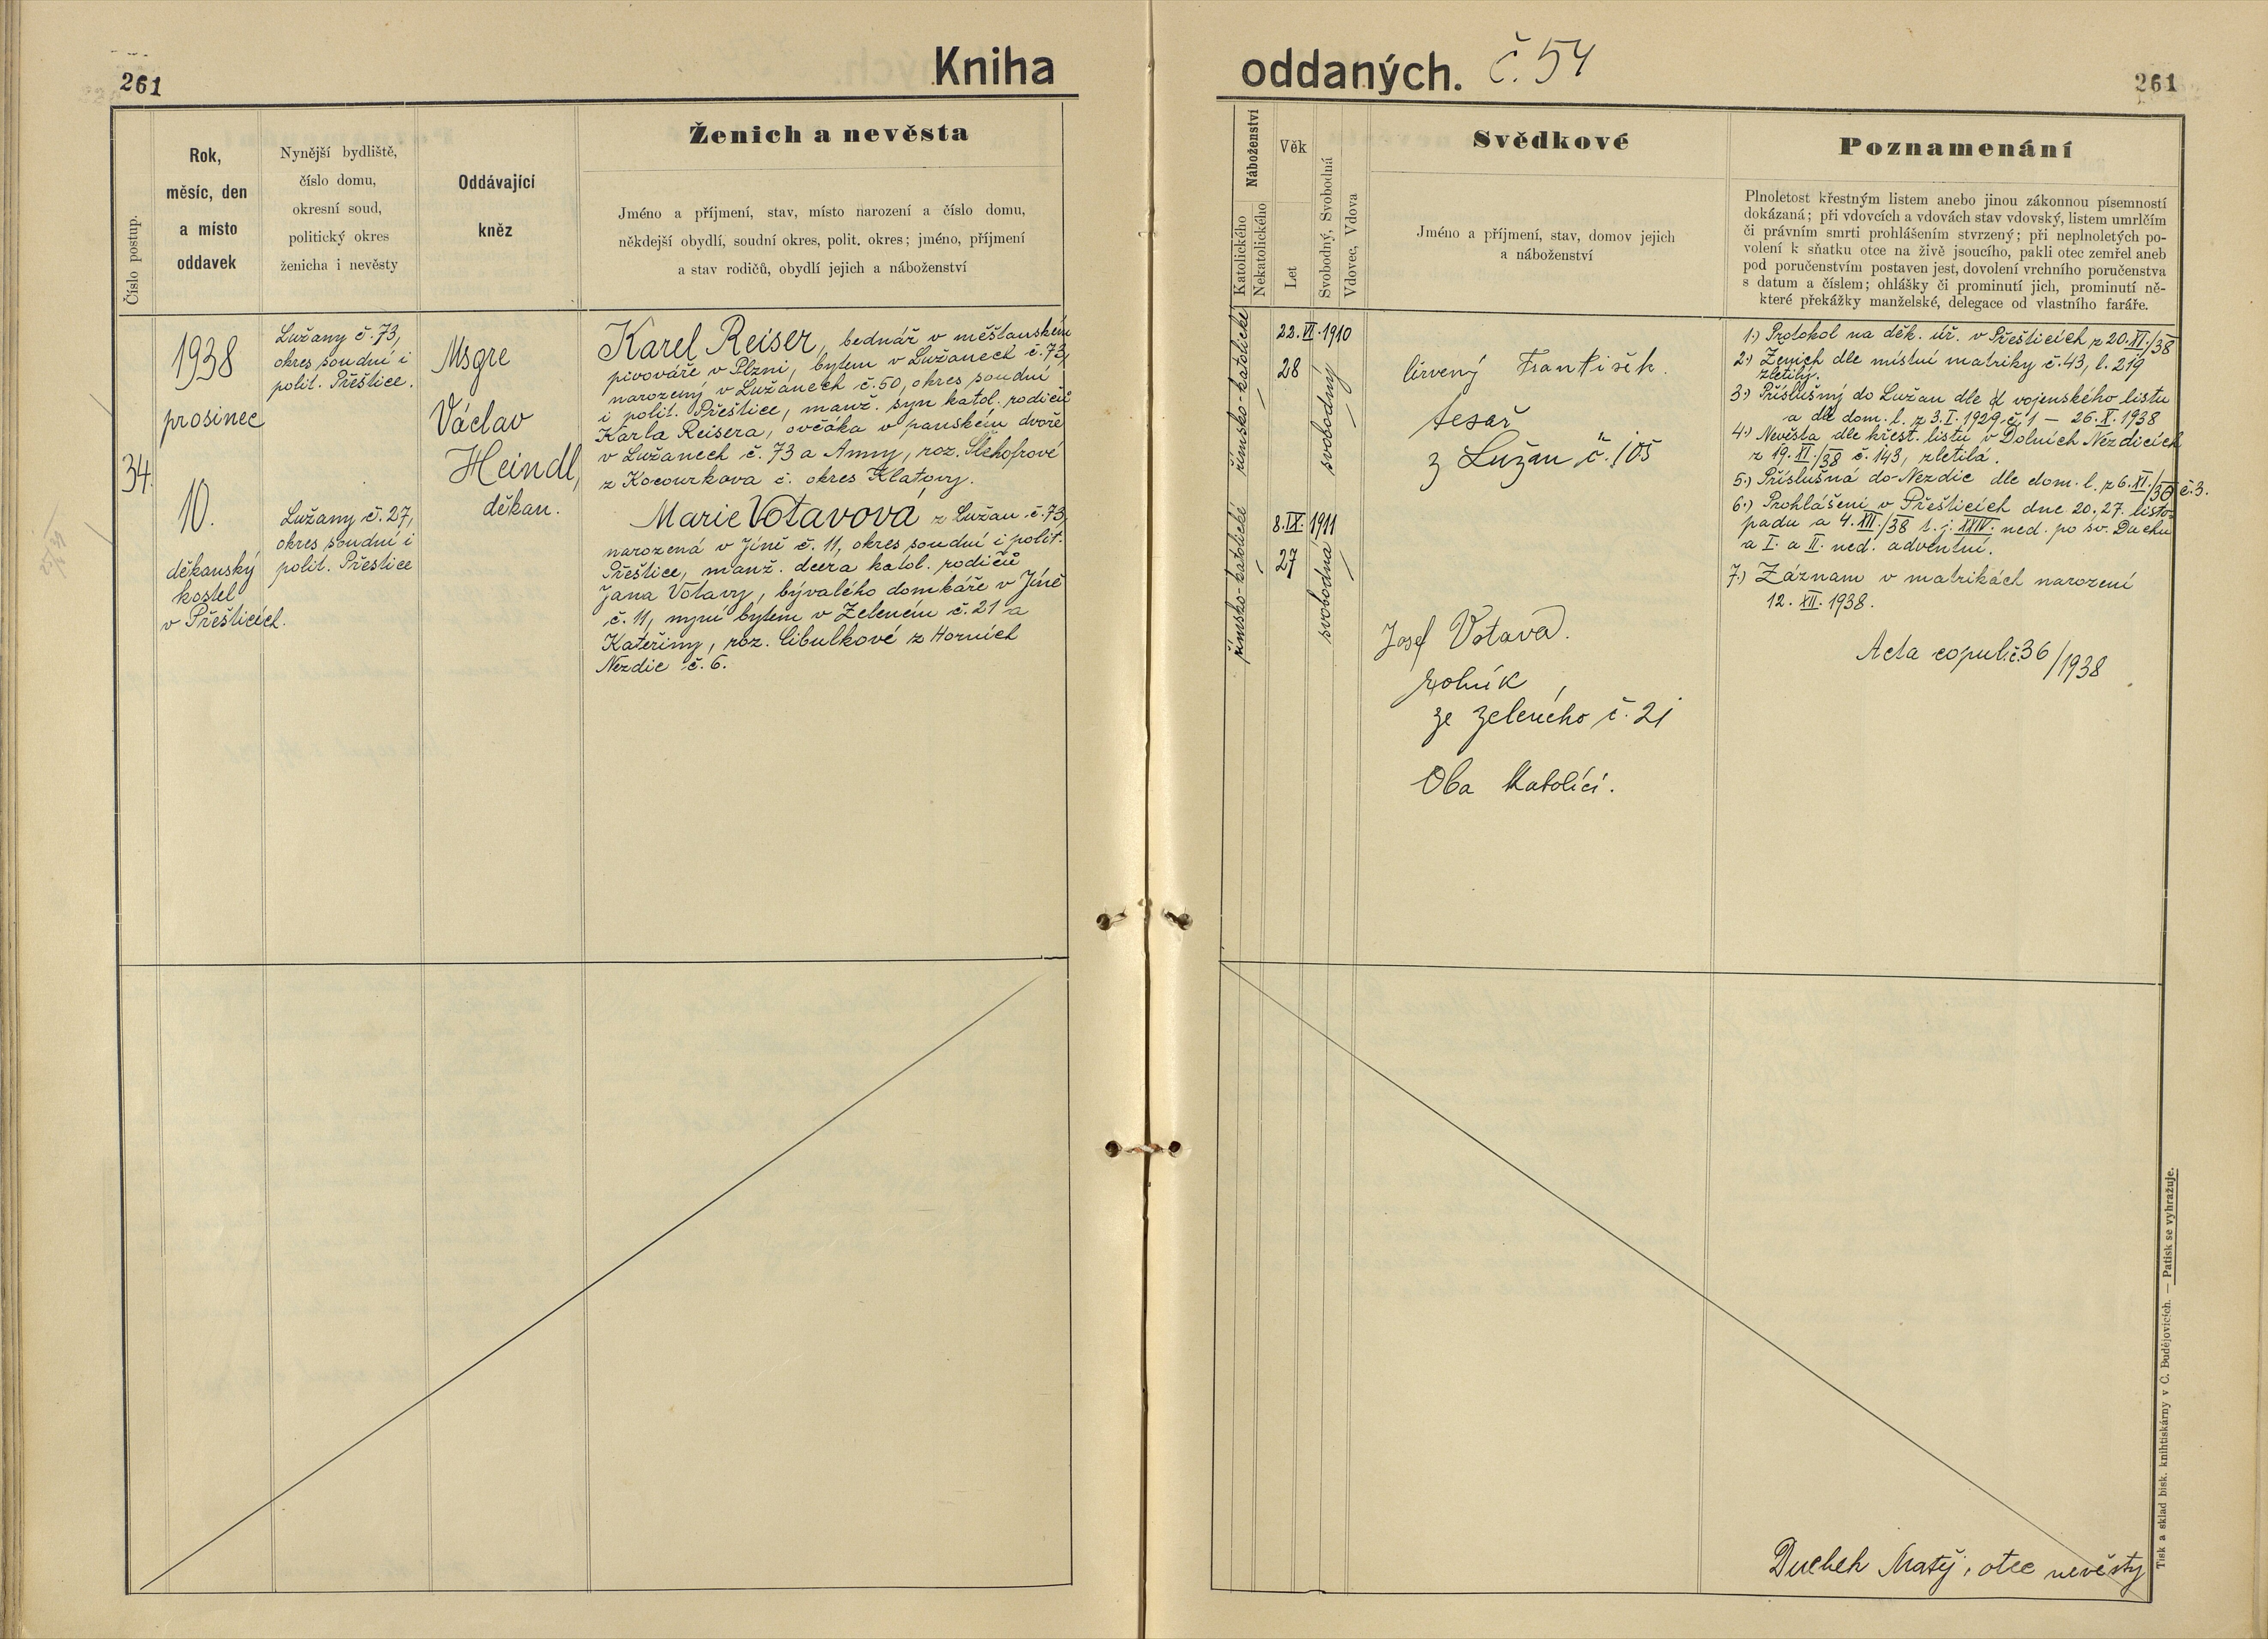 261
Kniha
oddaných. č. 54
261
Číslo postup.
Rok,
měsíc, den
a místo
oddavek
Nynější bydliště,
číslo domu,
okresní soud,
politický okres
ženicha i nevěsty
Oddávající
kněz
Ženich a nevěsta
Jméno a příjmení, stav, místo narození a číslo domu,
někdejší obydlí, soudní okres, polit. okres; jméno, příjmení
a stav rodičů, obydlí jejich a náboženství
Náboženství
Katolického
Nekatolického
Věk
Let
Svobodný, Svobodná
Vdovec, Vdova
Svědkové
Jméno a příjmení, stav, domov jejich
a náboženství
Poznamenání
Plnoletost křestným listem anebo jinou zákonnou písemností
dokázaná; při vdovcích a vdovách stav vdovský, listem umrlčím
či právním smrti prohlášením stvrzený; při neplnoletých po-
volení k sňatku otce na živě jsoucího, pakli otec zemřel aneb
pod poručenstvím postaven jest, dovolení vrchního poručenstva
s datum a číslem; ohlášky či prominutí jich, prominutí ně-
které překážky manželské, delegace od vlastního faráře.
34.
1938
prosinec
10.
děkanský
kostel
v Přešticích.
Lužany č. 73,
okres soudní i
polit. Přeštice.
Lužany č. 27,
okres soudní i
polit. Přeštice
Msgre
Václav
Heindl,
děkan.
Karel Reiser, bednář v měšťanském
pivováře v Plzni, bytem v Lužanech č. 73,
narozený v Lužanech č. 50, okres soudní
i polit. Přeštice, manž. syn katol. rodičů
Karla Reisera, ovčáka v panském dvoře
v Lužanech č. 73 a Anny, roz. Šlehofrové
z Kocourkova č. okres Klatovy.
Marie Votavová, z Lužan č. 73,
narozená v Jíně č. 11, okres soudní i polit.
Přeštice, manž. dcera katol. rodičů
Jana Votavy, bývalého domkáře v Jíně
č. 11, nyní bytem v Zeleném č. 21 a
Kateřiny, roz. Cibulkové z Horních
Nezdic č. 6.
římsko-katolické
22. VI. 1910
28
svobodný
římsko-katolické
8. IX. 1911
27
svobodná
Červený František.
tesař
z Lužan č. 105
Josef Votava.
rolník,
ze Zeleného č. 21
Oba katolíci.
1.) Protokol na děk. úř. v Přešticích z 20. XI./38
2.) Ženich dle místní matriky č. 43, l. 219
zletilý.
3.) Příslušný do Lužan dle vojenského listu
a dle dom. l. z 3. I. 1929 č. 1 – 26. X. 1938
4.) Nevěsta dle křest. listu v Dolních Nezdicích
z 19. XI./38 č. 143, zletilá.
5.) Příslušná do Nezdic dle dom. l. z 6. XI./36 č. 3.
6.) Prohlášeni v Přešticích dne 20. 27. listo-
padu a 4. XII./38 t. j. XXIV. ned. po sv. Duchu
a I. a II. ned. adventní.
7.) Záznam v matrikách narození
12. XII. 1938.
Acta copul. č. 36/1938
Duchek Matěj, otec nevěsty
Tisk a sklad bisk. knihtiskárny v Č. Budějovicích. — Patisk se vyhražuje.